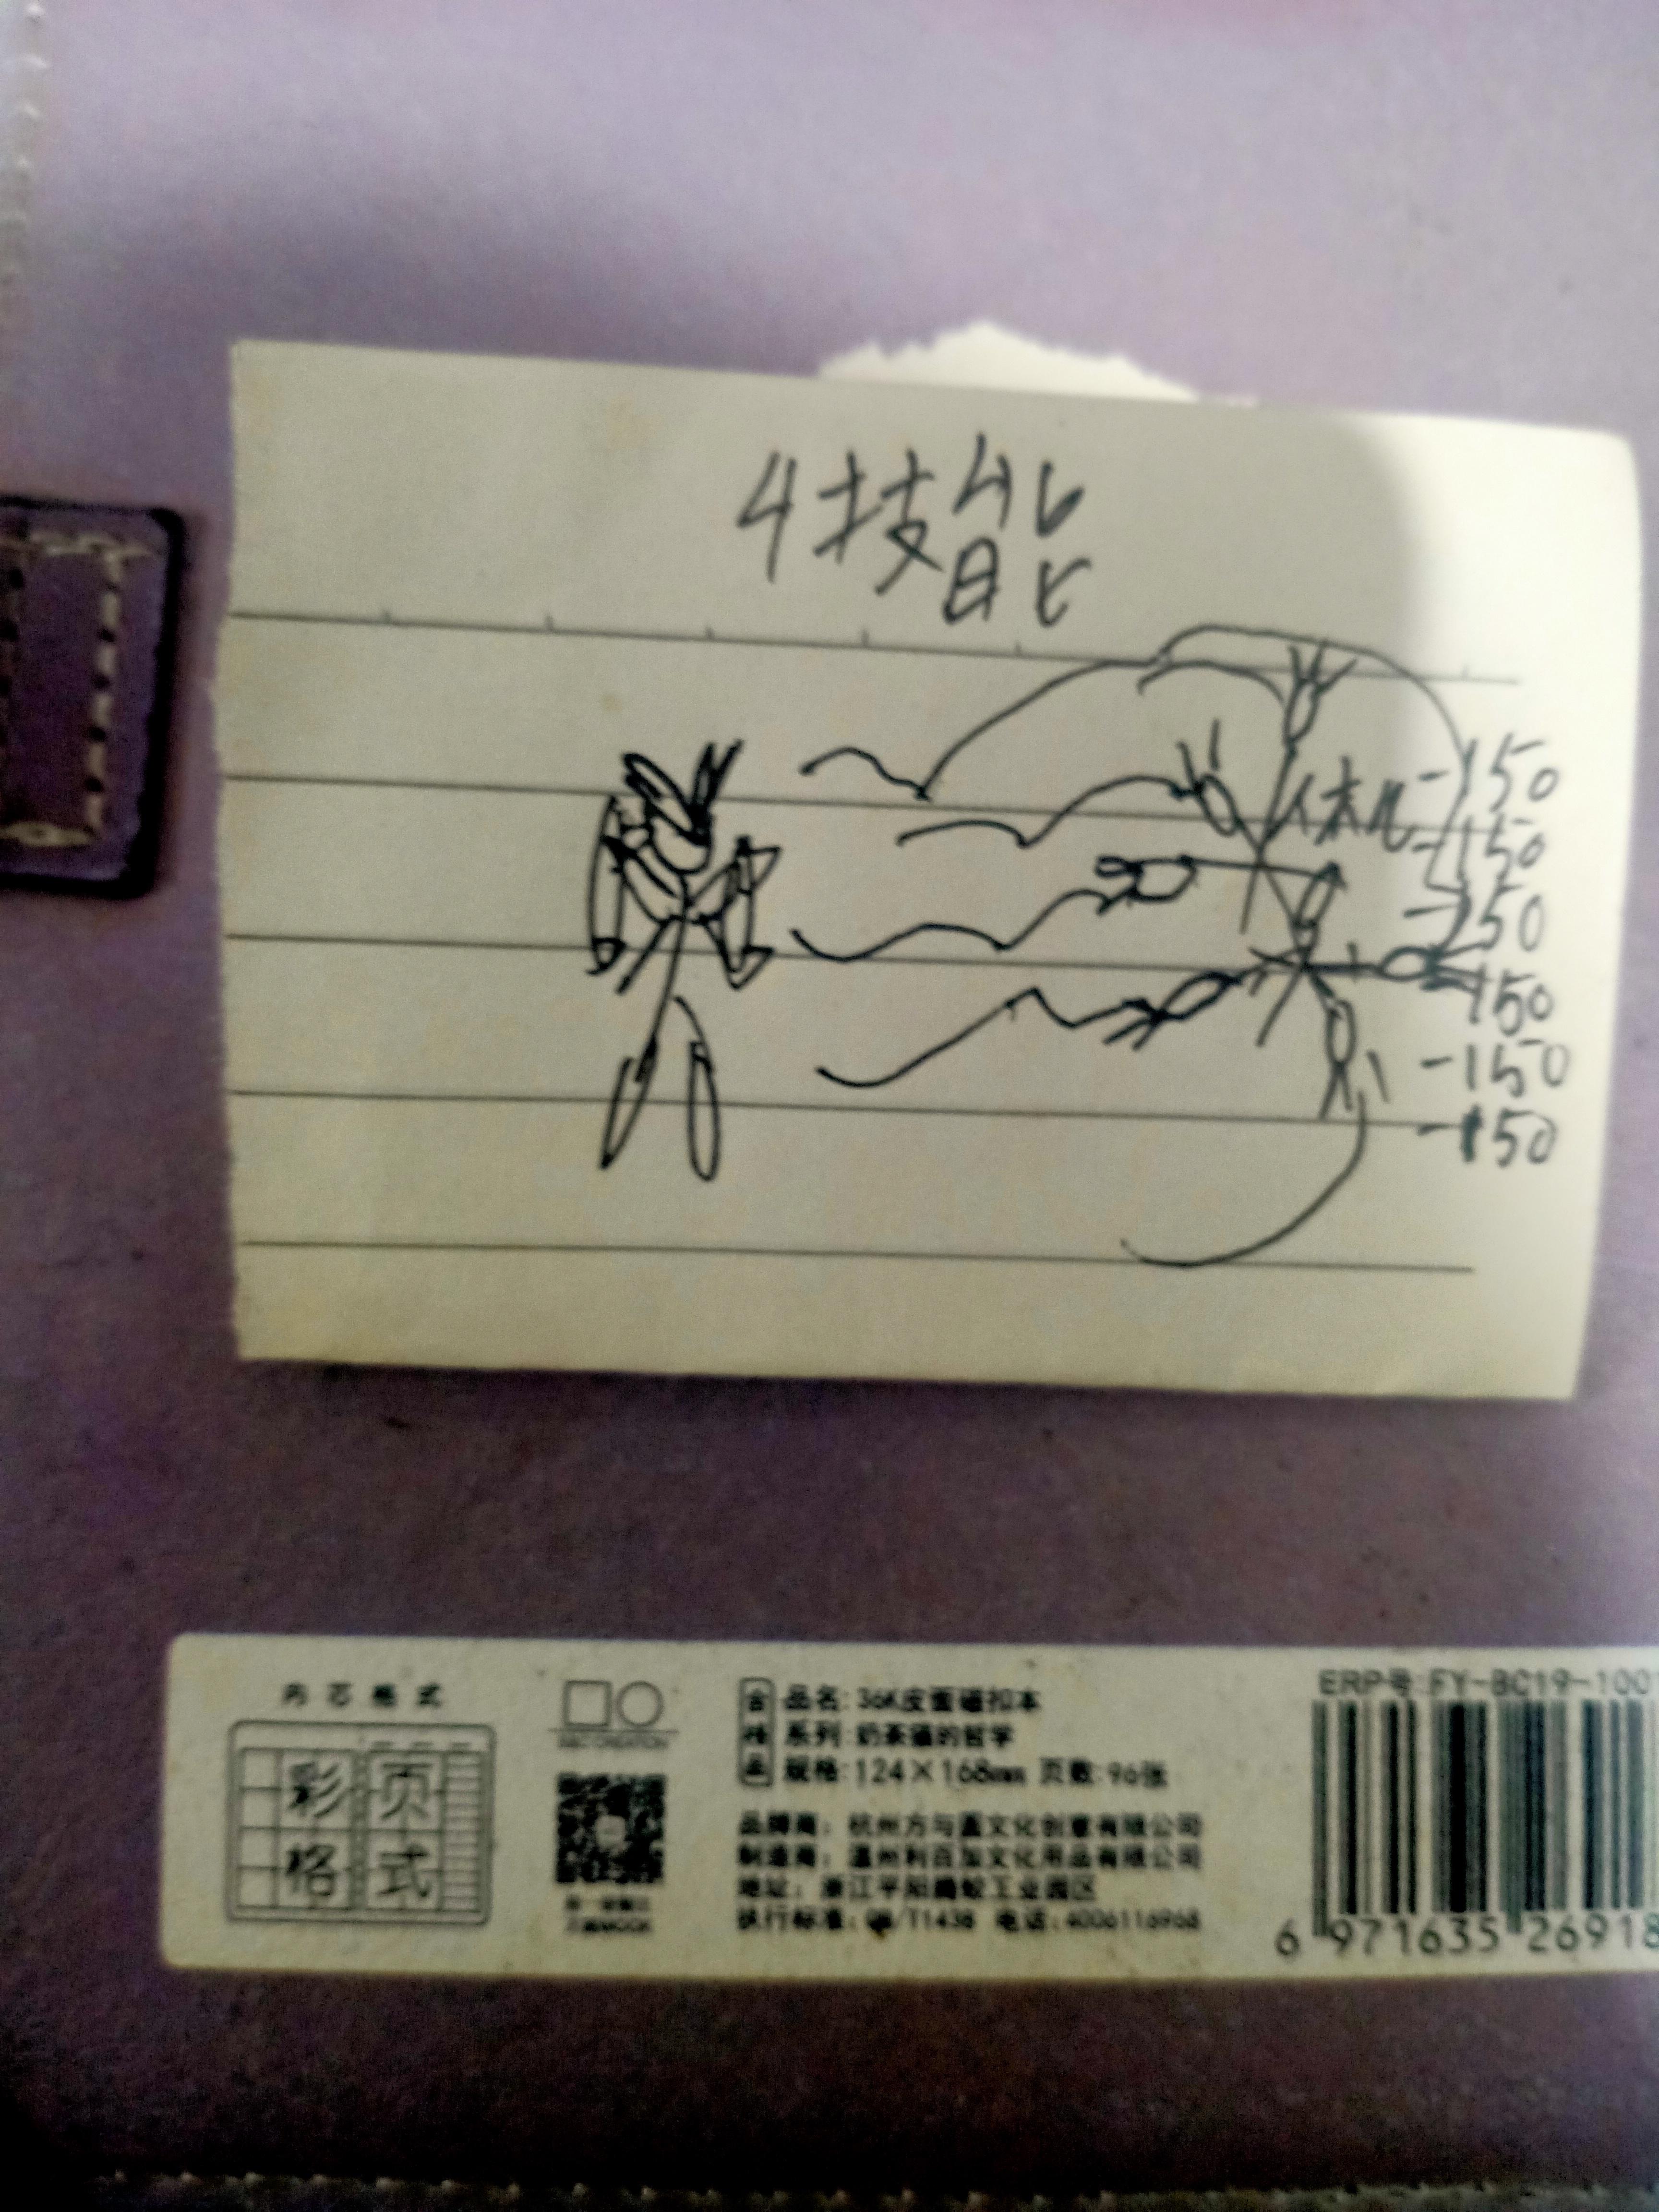 4技能
-150
-150
-150
-150
-150
-150
内芯格式
彩页
格式
合格品
品名:36K皮面磁扣本
系列:奶茶猫的哲学
规格:124×168mm 页数:96张
品牌商：杭州方与圆文化创意有限公司
制造商：温州利百加文化用品有限公司
执行标准：QB/T1438 电话:4006116968
ERP号:FY-BC19-100
6 971635 26918